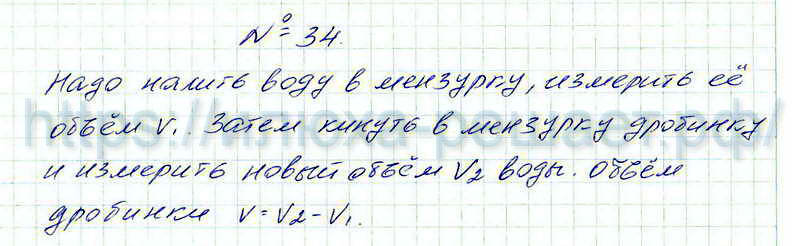 № 34.
Надо налить воду в мензурку, измерить её
объём V₁. Затем кинуть в мензурку дробинку
и измерить новый объём V₂ воды. Объём
дробинки V = V₂ - V₁.